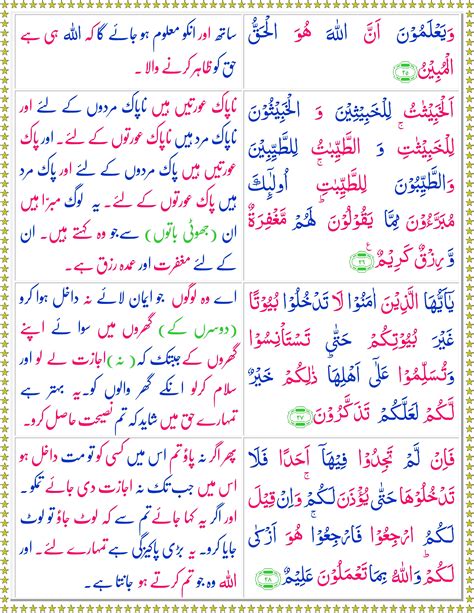 وَيَعْلَمُوْنَ اَنَّ اللّٰهَ هُوَ الْحَقُّ
الْمُبِيْنُ ﴿۲۵﴾
ساتھ اور انکو معلوم ہو جائے گا کہ اللہ ہی ہے
حق کو ظاہر کرنے والا ۔
اَلْخَبِيْثٰتُ لِلْخَبِيْثِيْنَ وَ الْخَبِيْثُوْنَ
لِلْخَبِيْثٰتِ ۚ وَ الطَّيِّبٰتُ لِلطَّيِّبِيْنَ
وَالطَّيِّبُوْنَ لِلطَّيِّبٰتِ ۚ اُولٰٓئِكَ
مُبَرَّءُوْنَ مِمَّا يَقُوْلُوْنَ ؕ لَهُمْ مَّغْفِرَةٌ
وَّ رِزْقٌ كَرِيْمٌ ﴿۲۶﴾ ع
ناپاک عورتیں ہیں ناپاک مردوں کے لئے اور
ناپاک مرد ہیں ناپاک عورتوں کے لئے۔ اور پاک
عورتیں ہیں پاک مردوں کے لئے اور پاک مرد
ہیں پاک عورتوں کے لئے۔ یہ لوگ مبرّا ہیں
ان (جھوٹی باتوں) سے جو وہ کہتے ہیں۔ ان
کے لئے مغفرت اور عمدہ رزق ہے۔
يٰۤاَيُّهَا الَّذِيْنَ اٰمَنُوْا لَا تَدْخُلُوْا بُيُوْتًا
غَيْرَ بُيُوْتِكُمْ حَتّٰى تَسْتَاْنِسُوْا
وَتُسَلِّمُوْا عَلٰٓى اَهْلِهَا ؕ ذٰلِكُمْ خَيْرٌ
لَّكُمْ لَعَلَّكُمْ تَذَكَّرُوْنَ ﴿۲۷﴾
اے وہ لوگوں جو ایمان لائے نہ داخل ہوا کرو
(دوسرں کے) گھروں میں سوا ئے اپنے
گھروں کے جبتک کہ (نہ) اجازت لے لو اور
سلام کرلو انکے گھر والوں کو۔ یہ بہتر ہے
تمہارے حق میں شاید کہ تم نصیحت حاصل کرو۔
فَاِنْ لَّمْ تَجِدُوْا فِيْهَاۤ اَحَدًا فَلَا
تَدْخُلُوْهَا حَتّٰى يُؤْذَنَ لَكُمْ ۚ وَاِنْ قِيْلَ
لَكُمُ ارْجِعُوْا فَارْجِعُوْا هُوَ اَزْكٰى
لَكُمْ ؕ وَاللّٰهُ بِمَا تَعْمَلُوْنَ عَلِيْمٌ ﴿۲۸﴾
پھر اگر نہ پاؤ تم اس میں کسی کو تو مت داخل ہو
اس میں جب تک نہ اجازت دی جائے تمکو۔
اور اگر یہ کہا جائے تم سے کہ لوٹ جاؤ تو لوٹ
جایا کرو۔ یہ بڑی پاکیزگی ہے تمہارے لئے۔ اور
اللہ وہ جو تم کرتے ہو جانتا ہے۔